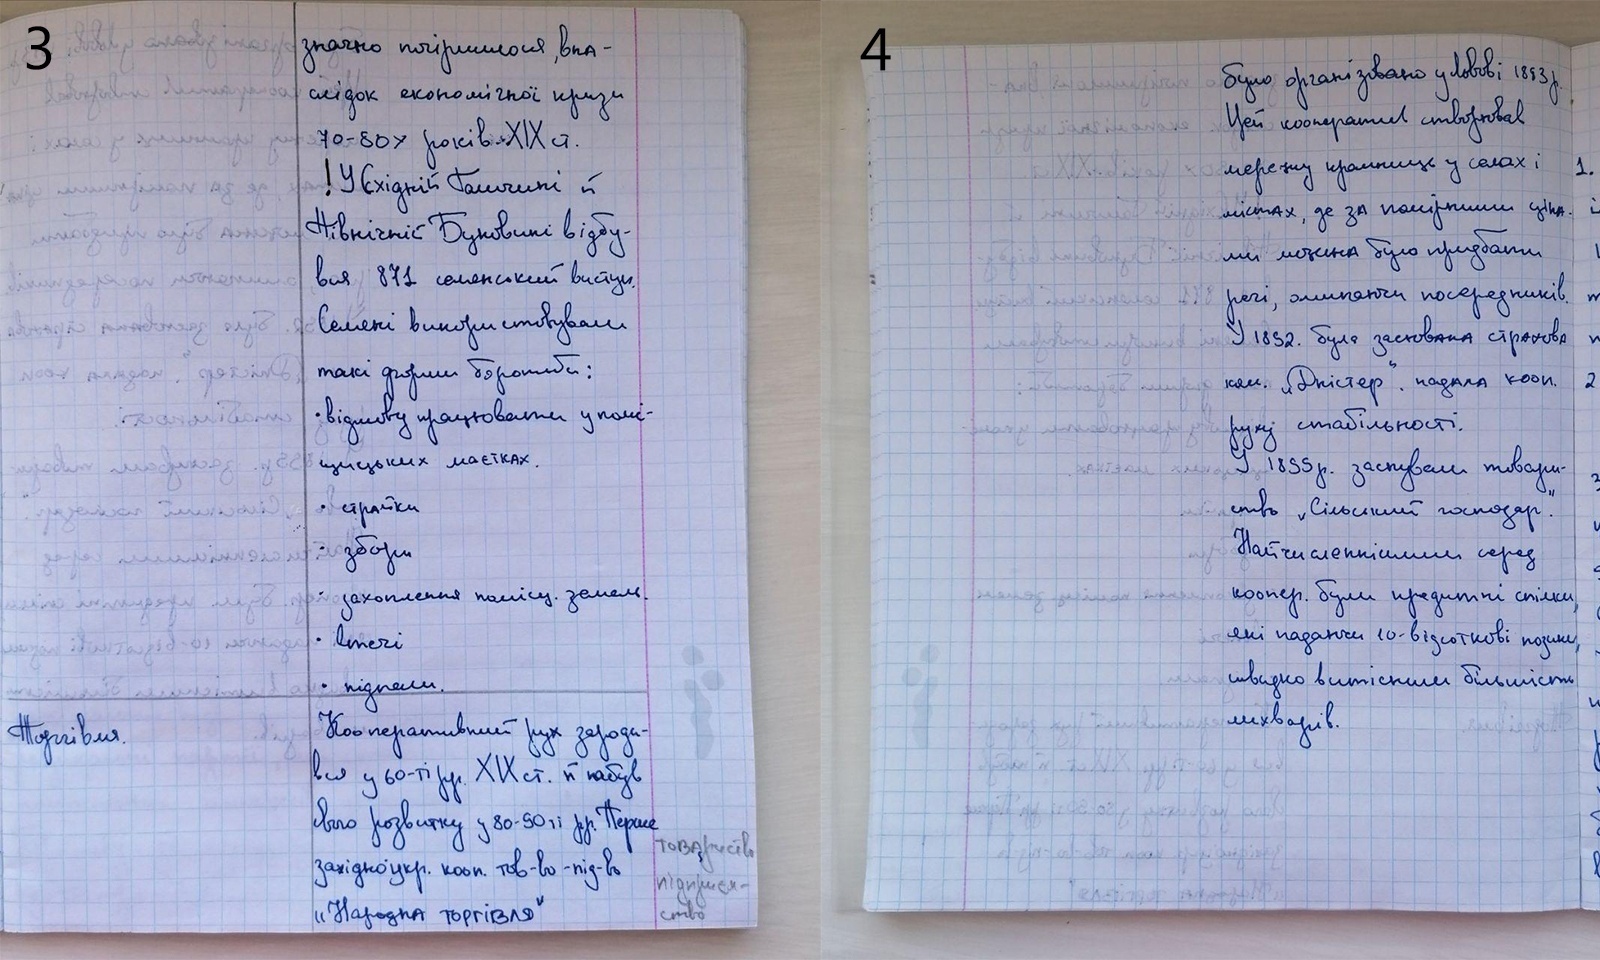 3
значно погіршилося, вна-
слідок економічної кризи
70-80х років XIX ст.
! У Східній Галичині й
Північній Буковині відбу-
вся 871 селянський виступ.
Селяни використовували
такі форми боротьби:
• відмову працювати у помі-
щицьких маєтках.
• страйки
• збори
• захоплення поміщ. земель.
• втечі
• підпали.
Торгівля.
Кооперативний рух зароди-
вся у 60-ті рр. XIX ст. й набув
свого розвитку у 80-90ті рр. Перше
західноукр. кооп. тов-во-під-во
"Народна торгівля"
товариство
підприєм-
ство
4
було організовано у Львові 1883р.
Цей кооператив створював
мережу крамниць у селах і
містах, де за помірними ціна-
ми можна було придбати
речі, оминаючи посередників.
У 1892. була заснована страхова
ком. „Дністер". надала кооп.
руху стабільності.
У 1899р. заснували товари-
ство „Сільський господар".
Найчисленнішими серед
коопер. були кредитні спілки,
які надаючи 10-відсоткові позики,
швидко витіснили більшість
лихварів.
1.
2